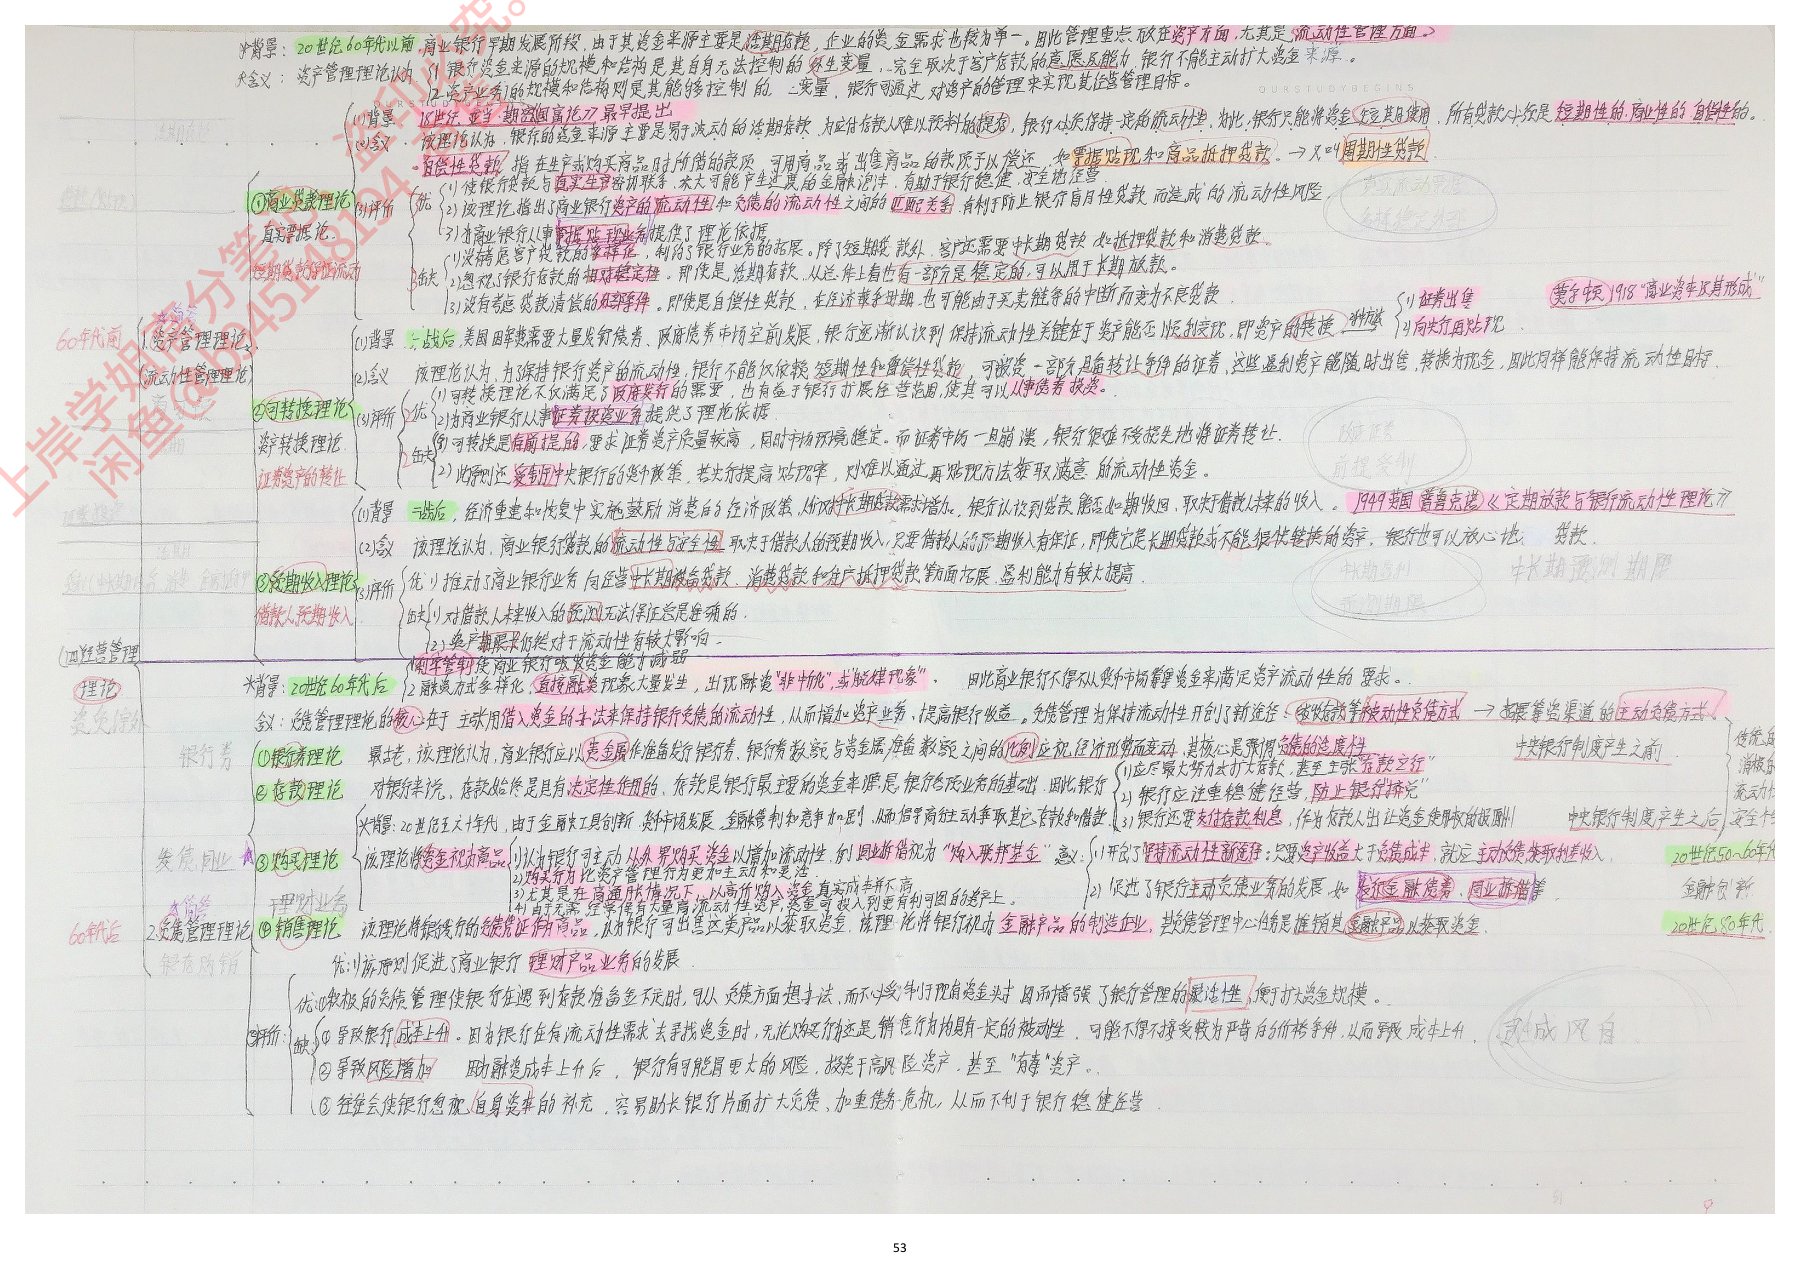 *背景：20世纪60年代以前，商业银行早期发展阶段，由于其资金来源主要是活期存款，企业的资金需求也较为单一。因此管理重点放在资产方面，尤其是流动性管理方面。
*含义：资产管理理论认为 (1. 银行资金来源的规模和结构是其自身无法控制的外生变量，完全取决于客户存款的意愿及能力，银行不能主动扩大资金来源。
(2. 资产业务的规模和结构则是其能够控制的变量，银行可通过对资产的管理来实现其经营管理目标。
OURSTUDYBEGINS
(1)背景 18世纪，亚当·斯密《国富论》最早提出
(2)含义 该理论认为，银行的资金来源主要是易于波动的活期存款，为应付存款人难以预料的提存，银行必须保持一定的流动性，为此，银行只能将资金短期使用，所有贷款必须是短期性的、商业性的、自偿性的。
自偿性贷款：指在生产或购买商品时所借的款项，可用商品或出售商品的款项予以偿还，如票据贴现和商品抵押贷款。→又叫周期性贷款
①商业贷款理论
真实票据论
短期贷款保证流动
(3)评价
优 1) 使银行贷款与真实生产密切联系，不大可能产生过度的金融泡沫，有助于银行稳健、安全地经营
2) 该理论指出了商业银行资产的流动性和负债的流动性之间的匹配关系，有利于防止银行盲目性贷款而造成的流动性风险
3) 为商业银行从事票据贴现业务提供了理论依据
缺失 1) 没有考虑客户贷款的多样化，制约了银行业务的拓展。除了短期贷款外，客户还需要中长期贷款如抵押贷款和消费贷款。
2) 忽视了银行存款的相对稳定性。即使是活期存款，从总体上看也有一部分是稳定的，可以用于长期放款。
3) 没有考虑贷款清偿的外部条件。即使是自偿性贷款，在经济萧条时期，也可能由于买卖链条的中断而变为不良贷款
60年代前
1.资产管理理论
(流动性管理理论)
1) 证券出售
2) 向央行再贴现
莫尔顿 1918 “商业资本及其形成”
(1)背景 一战后，美国因军费需要大量发行债券、政府债券市场空前发展，银行逐渐认识到保持流动性关键在于资产能否以迅速变现，即资产的转换
(2)含义 该理论认为，为了保持银行资产的流动性，银行不能仅依赖短期性和自偿性贷款，可投资一部分具备转让条件的证券，这些盈利资产能随时出售，转换为现金，因此同样能保持流动性目标。
②可转换理论
资产转换理论
证券资产的转让
(3)评价
优 1) 可转换理论不仅满足了政府发行的需要，也有益于银行扩展经营范围，使其可以从事债券投资。
2) 为商业银行从事证券投资业务提供了理论依据
缺失 1) 可转换是有前提的，要求证券资产质量较高，同时市场环境稳定。而证券市场一旦崩溃，银行很难不受损失地将证券转让。
2) 此原则还受制于中央银行的货币政策，若央行提高贴现率，则难以通过再贴现方法获取满意的流动性资金。
(1)背景 二战后，经济重建和恢复中实施鼓励消费的经济政策，人们对中长期贷款需求增加，银行认识到贷款能否如期收回，取决于借款人未来的收入。1949美国 普鲁克诺《定期放款与银行流动性理论》
(2)含义 该理论认为，商业银行贷款的流动性与安全性取决于借款人的预期收入，只要借款人的预期收入有保证，即使它是长期贷款或不能很快转换的资产，银行也可以放心地 贷款
③预期收入理论
借款人预期收入
(3)评价
优：1) 推动了商业银行业务向经营中长期设备贷款、消费贷款和住房抵押贷款等方面拓展，盈利能力有较大提高
中长期预测期限
缺失 1) 对借款人未来收入的预测无法保证总是准确的。
2) 资产期限长仍然对于流动性有较大影响。
(四)经营管理
理论
*背景：20世纪60年代后 1. 利率管制使商业银行吸收资金能力减弱
2. 融资方式多样化，直接融资现象大量发生，出现融资“非中介化”或“脱媒现象”。因此商业银行不得不从货币市场筹募资金来满足资产流动性的要求。
含义：负债管理理论的核心在于主张用借入资金的办法来保持银行负债的流动性，从而增加资产业务、提高银行收益。负债管理为保持流动性开创了新途径：吸收存款等被动性负债方式→拓展筹资渠道的主动负债方式
银行券
①银行券理论 最古老，该理论认为，商业银行应以贵金属作准备发行银行券，银行券数额与贵金属准备数额之间的比例应视经济形势而变动，其核心是强调负债的适度性 中央银行制度产生之前
②存款理论 对银行来说，存款始终是具有决定性作用的，存款是银行最主要的资金来源，是银行各项业务的基础。因此银行
1) 应尽最大努力去扩大存款，甚至主张“存款立行”
2) 银行应注重稳健经营，防止银行“挤兑”
3) 银行还要支付存款利息，作为存款人出让资金使用权的报酬 中央银行制度产生之后
③购买理论
背景：20世纪五六十年代，由于金融工具创新、货币市场发展、金融管制和竞争加剧，从而倡导商行主动争取其它存款和借款
该理论将资金视为商品
1) 认为银行可主动从外界购买资金以增加流动性，例同业拆借视为“购入联邦基金”
2) 购买行为比资产管理行为更加主动和灵活
3) 尤其是在高通胀情况下，以高价购入资金真实成本并不高
4) 由于无需经常保有大量高流动性资产，资金可投入到更有利可图的资产上。
意义：1) 开创了保持流动性新途径：只要资产收益大于负债成本，就应主动负债获取利差收入
2) 促进了银行主动负债业务的发展，如发行金融债券、同业拆借等
20世纪50～60年代
金融创新
理财业务
60年代后
2.负债管理理论
④销售理论 该理论将银行的负债凭证作为商品，认为银行可出售这类产品以获取资金，该理论将银行视为金融产品的制造企业，其负债管理中心任务是推销其金融产品以获取资金 20世纪80年代
优：1) 该原则促进了商业银行理财产品业务的发展
评价：
优：①积极的负债管理使银行在遇到存款准备金不足时，可从负债方面想办法，而不必受制于现有资金头寸，因而增强了银行管理的灵活性，便于扩大资金规模。
缺 ①导致银行成本上升。因为银行在有流动性需求去寻找资金时，无论购买行为还是销售行为均具有一定的被动性，可能不得不接受较为严苛的价格条件，从而导致成本上升。
②导致风险增加 因为融资成本上升后，银行有可能冒更大的风险，投资于高风险资产，甚至“有毒”资产。
③往往会使银行忽视自身资本的补充，容易助长银行片面扩大负债、加重债务危机，从而不利于银行稳健经营
上岸学姐高分笔记，盗印必究。
闲鱼@b945148194
53